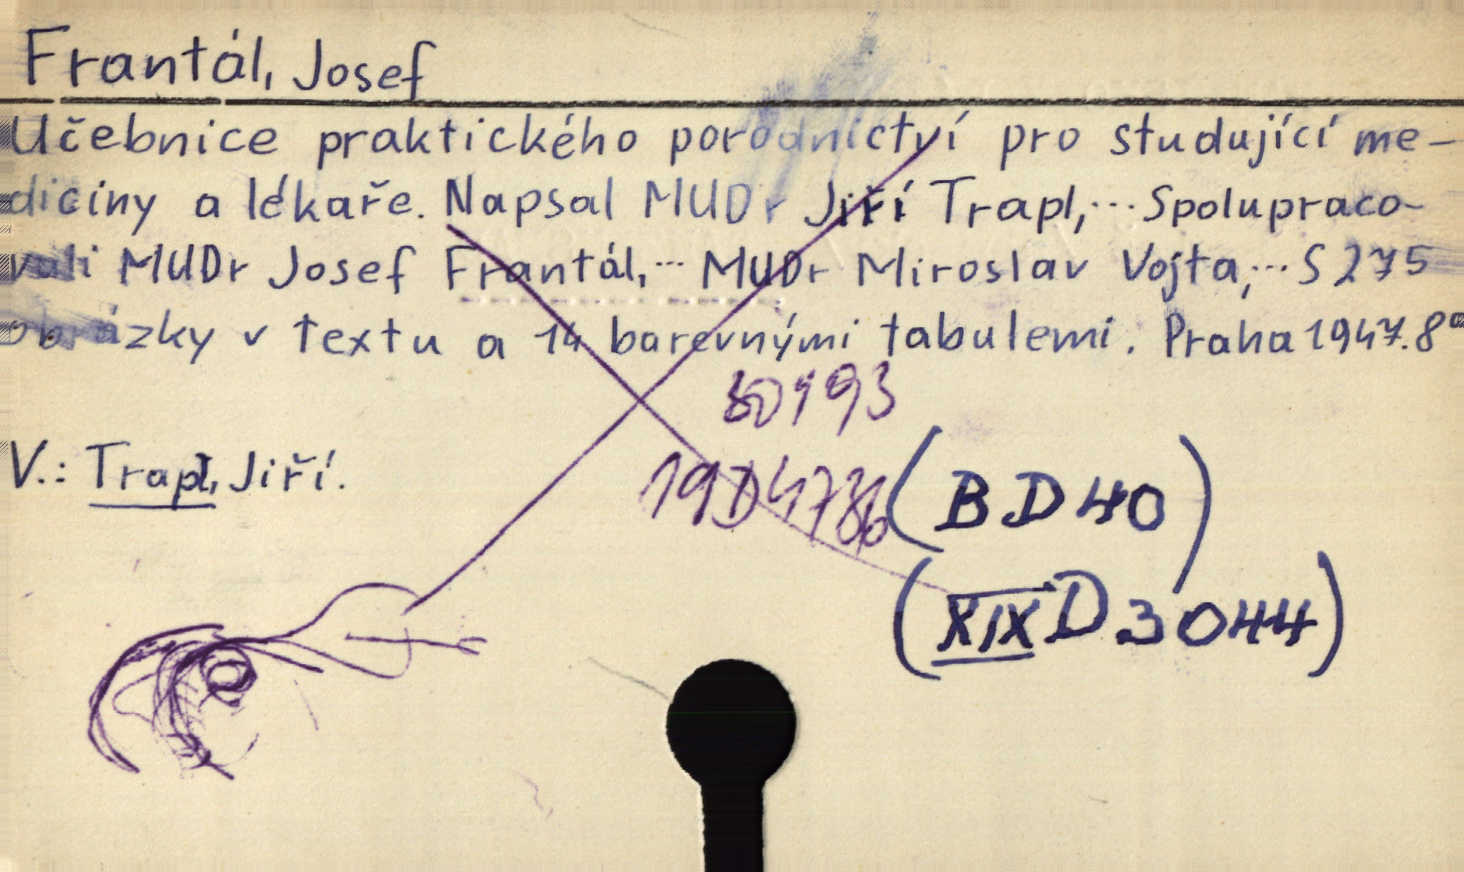 Frantál, Josef
Učebnice praktického porodnictví pro studující me-
diciny a lékaře. Napsal MUDr Jiří Trapl,... Spolupraco-
vali MUDr Josef Frantál,... MUDr Miroslav Vojta,... S 275
obrázky v textu a 14 barevnými tabulemi. Praha 1947. 8°
80193
V.: Trapl, Jiří.
19D4786
(BD40)
(XIX D 3044)